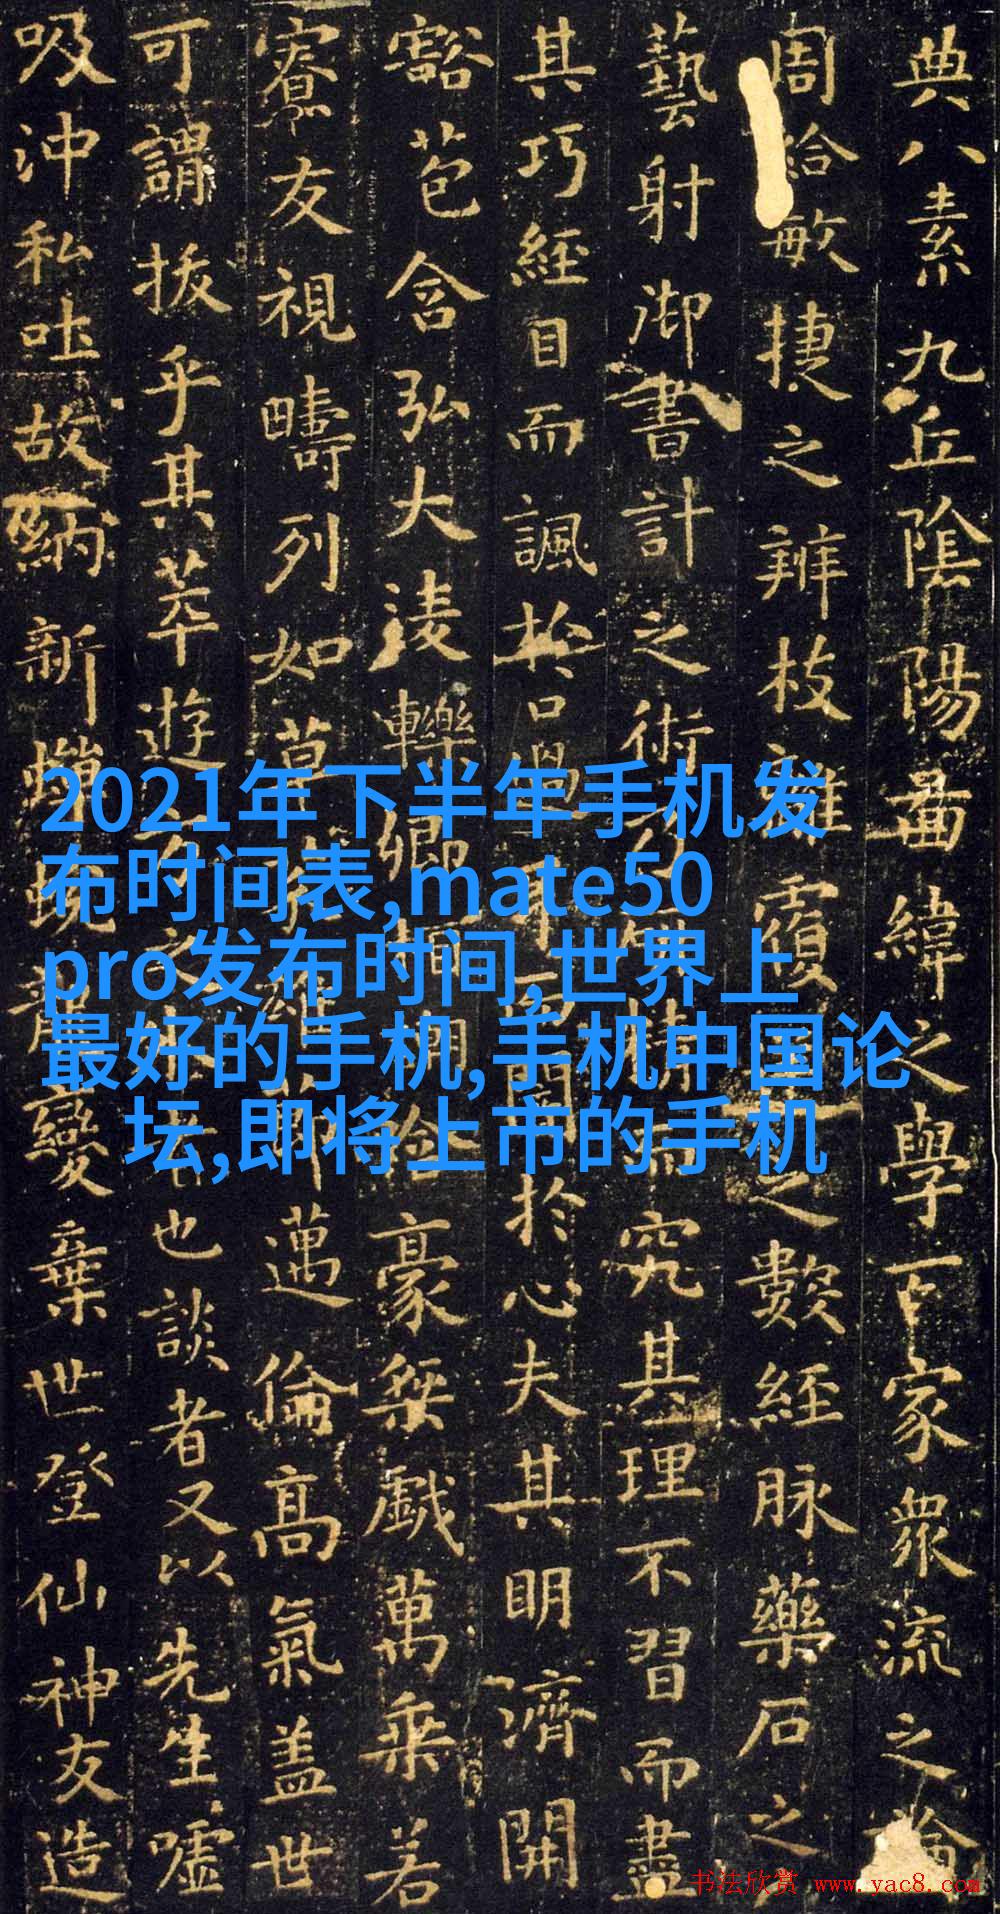 典八素九丘陰陽啚緯之學百家衆流之論
周給敏捷之辨枝離覆之數經脉藥石之
藝射御書計之術而究其理不習而盡
其巧經目而諷於口過耳而闇於心夫其明濟開
豁苞含弘大淩轢卿相嘲豪桀戯萬乘若
寮友視疇列如草邁倫高氣蓋世
可謂拔乎其萃遊方之也談者又以先生噓
吸沖和吐故納新蟬蛻變棄世登仙神友造
2021年下半年手机发
布时间表,mate50
pro发布时间,世界上
最好的手机,手机中国论
坛,即将上市的手机
书法欣赏 www.yac8.com